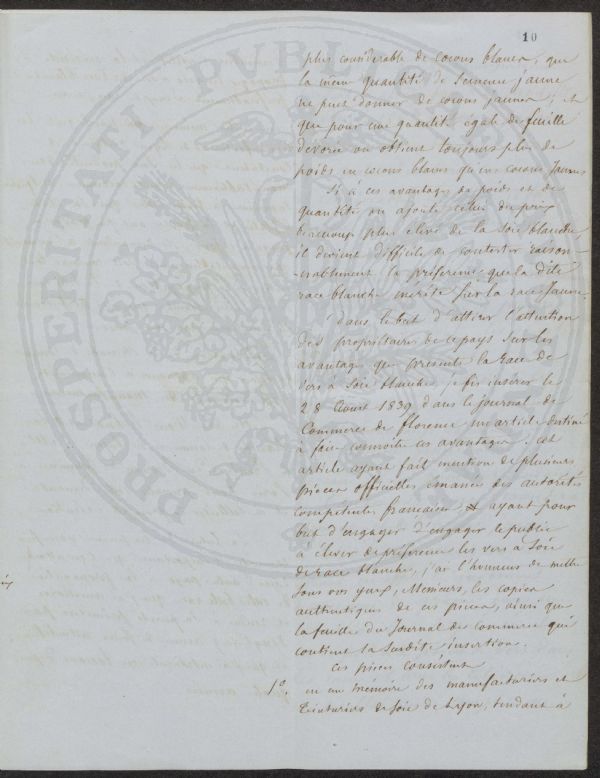 10
plus considérable de cocons blancs, que
la même quantité de semence jaune
ne peut donner de cocons jaunes; et
que pour une quantité égale de feuille
dévorée on obtient toujours plus de
poids en cocons blancs qu'en cocons jaunes
Si à ces avantages de poids et de
quantités on ajoute celui du prix
beaucoup plus élevé de la soie blanche,
il devient difficile de contester raison-
-nablement la préférence que la dite
race blanche mérite sur la race jaune.
Dans le but d'attirer l'attention
des propriétaires de ce pays sur les
avantages que présente la race de
vers à soie blanche, je fis insérer le
28 Août 1839 dans le journal de
Commerce de florence un article destiné
à faire connoître ces avantages. cet
article ayant fait mention de plusieurs
pièces officielles émanées des autorités
compétentes françaises & ayant pour
but d'engager d'engager le public
à élever de préférence les vers à soie
de race blanche, j'ai l'honneur de mettre
sous vos yeux, Messieurs, les copies
authentiques de ces pièces, ainsi que
la feuille du Journal de commerce qui
contient la susdite insertion.
Ces pièces consistent
1°. en un mémoire des manufacturiers et
teinturiers de soie de Lyon, tendant à
PROSPERITATI PVBLICAE